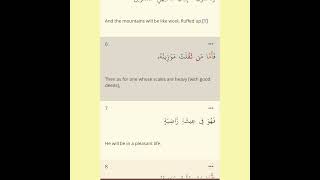 And the mountains will be like wool, fluffed up.[1]
6
فَأَمَّا مَن ثَقُلَتْ مَوَٰزِينُهُۥ
Then as for one whose scales are heavy [with good
deeds],
7
فَهُوَ فِى عِيشَةٍ رَّاضِيَةٍ
He will be in a pleasant life.
8